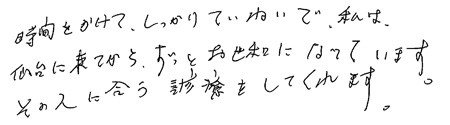 時間をかけて、しっかりていねいで、私は、
仙台に来てから、ずっとお世話になってています。
その人に合う診療をしてくれます。